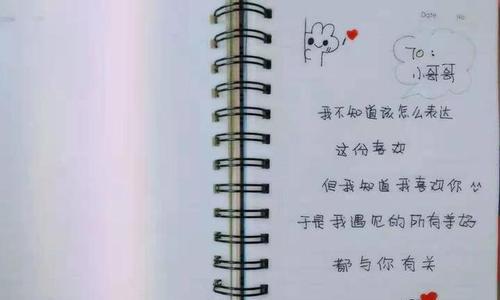 Date No
TO:
小哥哥
我不知道该怎么表达
这份喜欢
但我知道我喜欢你
于是我遇见的所有美好
都与你有关